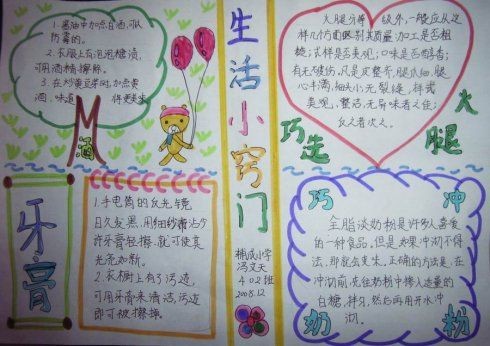 1.酱油中加点白酒,可以
防霉的。
2.衣服上有泡泡糖渍,
可用酒精擦除。
3.在炒黄豆芽时,加点黄
酒,味道 更
酒
生活小窍门
精武小学
冯文天
402班
2005.12
火腿分等 级外,一般应从这
样几个方面区别其质量:加工是否粗
糙;式样是否美观;口味是否醇香;
有无破伤,凡是皮整齐,腿爪细,腿
心丰满,油头小,无裂缝,样式
美观,整洁,无异味者为佳;
反之者次之。
巧选
火腿
牙膏
1.手电筒的反光镜
日久发黑,用细纱布沾少
许牙膏轻擦,就可使其
光亮如新。
2.衣橱上有了污迹,
可用牙膏来清洁,污迹
即可被擦掉。
巧冲
奶粉
全脂淡奶粉是许多人喜爱
的一种食品,但是如果冲沏不得
法,那就会生。正确的方法是,在
冲沏前,先往奶粉中掺入适量的
白糖,拌匀,然后再用开水冲
沏。